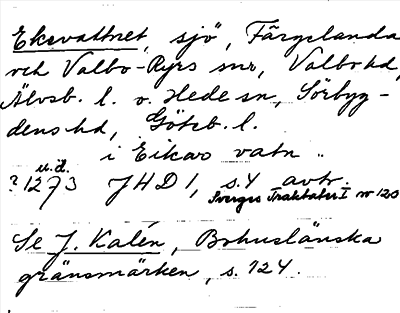 Eksvattnet, sjö, Färgelanda
och Valbo-Ryrs snr, Valbo hd,
Älvsb. l. o. Hede sn, Sörbyg-
dens hd, Göteb. l.
i Eikas vatn ..
u.d.
? 1273 JHD 1, s. 4 avtr.
Sveriges Traktater I nr 120
Se J. Kalén, Bohuslänska
gränsmärken, s. 124.